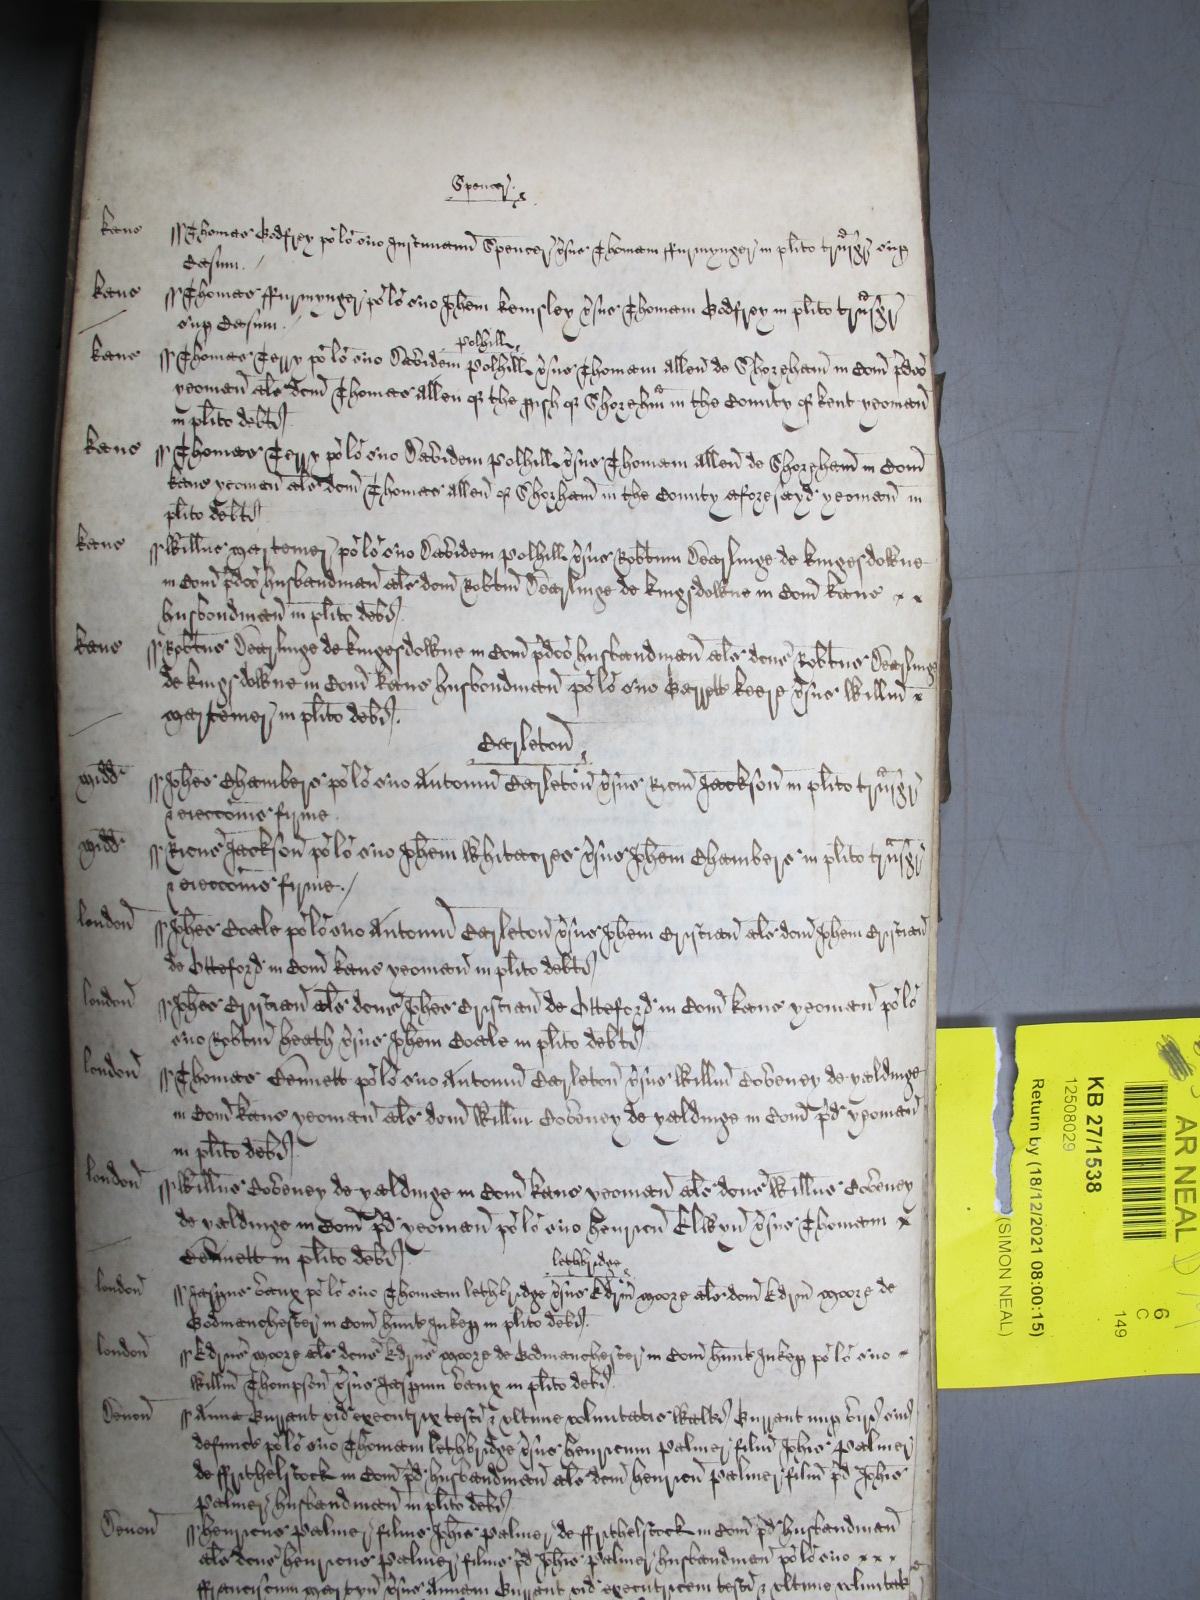 Spencer
Kanc Thomas Godfrey po lo suo Justinianu Spencer vsus Thomam ffurmynger in plito trnsgr sup
Casum
Kanc Thomas ffurmynger po lo suo Johem Kemsley vsus Thomam Godfrey in plito trnsgr
sup Casum
polhill
Kanc Thomas Terry po lo suo Davidem polhill vsus Thomam Allen de Shoreham in Com pdco
yeoman als dcm Thomas Allen of the pish of Shoreham in the County of Kent yeoman
in plito debti
Kanc Thomas Terry po lo suo Davidem polhill vsus Thomam Allen de Shoreham in Com
Kanc yeoman als dcm Thomas Allen of Shorham in the County aforesayd yeoman in
plito debti
Kanc Willus po lo suo Davidem polhill vsus Robtum Dearlinge de Kingesdowne
in Com pdco husbandman als dcm Robtm Dearlinge de Kingsdowne in Com Kanc x x
husbondman in plito debi
Kanc Robtus Dearlinge de Kingesdowne in Com pdco husbandman als dcus Robtus Dearlinge
de Kingsdowne in Com Kanc husbondman po lo suo Garrett Keere vsus Willm x
in plito debi
Carleton
Midd Johes Chambers po lo suo Antoniu Carleton vsus Ricm Jackson in plito trnsgr
& eieccois firme
Midd Ricus Jackson po lo suo Johem Whitacres vsus Johem Chambers in plito trnsgr
& eieccois firme
London Johes Coale po lo suo Antoniu Carleton vsus Johem Cristian als dcm Johem Cristian
de Otteford in Com Kanc yeoman in plito debti
London Johes Cristian als dcus Johes Cristian de Otteford in Com Kanc yeoman po lo
suo Robtm Heath vsus Johem Coale in plito debti
London Thomas Cennett po lo suo Antoniu Carleton vsus Willm Coveney de yaldinge
in Com Kanc yeoman als dcm Willm Coveney de yaldinge in Com pd yeoman
in plito debi
London Willus Coveney de yaldinge in Com Kanc yeoman als dcus Willus Coveney
de yaldinge in Com pd yeoman po lo suo Henricu Elwyn vsus Thomam x
Cennett in plito debi
lethbridge
London Jaspus Vaux po lo suo Thomam lethbridge vsus Edrm Moore als dcm Edrm Moore de
Godmanchester in Com hunt Inkep in plito debi
London Edrus Moore als dcus Edrus Moore de Godmanchester in Com hunt Inkep po lo suo
Willm Thompson vsus Jaspum Vaux in plito debi
Devon Anna Gurrant vid executrix testi & ultime voluntatis Walti Gurrant nup viri sui
defunct po lo suo Thomam lethbridge vsus Henricum Palmer filiu Johis Palmer
de ffrithelstock in Com pd husbandman als dcm Henricu Palmer filiu pd Johis
Palmer husbandman in plito debi
Devon Henricus Palmer filius Johis Palmer de ffrithelstock in Com pd husbandman
als dcus Henricus Palmer filius pd Johis Palmer husbandman po lo suo x x x
ffranciscum Martyn vsus Annam Gurrant vid executricem testi & ultime voluntat
AR NEAL
6
C
149
KB 27/1538
12508029
Return by (18/12/2021 08:00:15)
(SIMON NEAL)